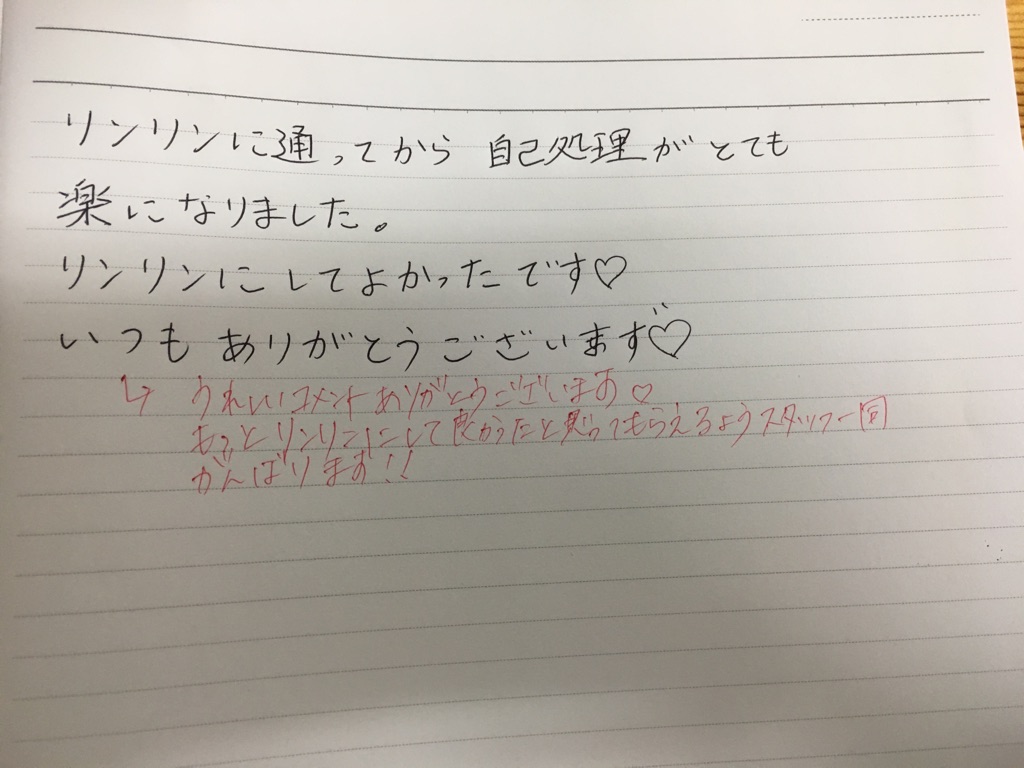 リンリンに通ってから 自己処理がとても
楽になりました。
リンリンにしてよかったです♡
いつも ありがとうございます♡
↳ うれしいコメントありがとうございます♡
もっとリンリンにして良かったと思ってもらえるようスタッフ一同
がんばります!!